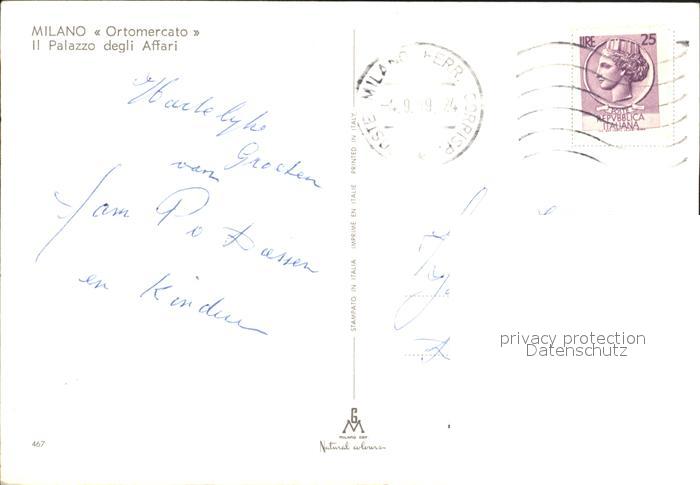 MILANO « Ortomercato »
Il Palazzo degli Affari
Hartelyke
Groeten
van
Fam
en Kinderen
STAMPATO IN ITALIA IMPRIME EN ITALIE PRINTED IN ITALY
POSTE MILANO FERR. CORRISP.
LIRE 25
POSTE
REPVBBLICA
ITALIANA
privacy protection
Datenschutz
467
MILANO
Natural colours